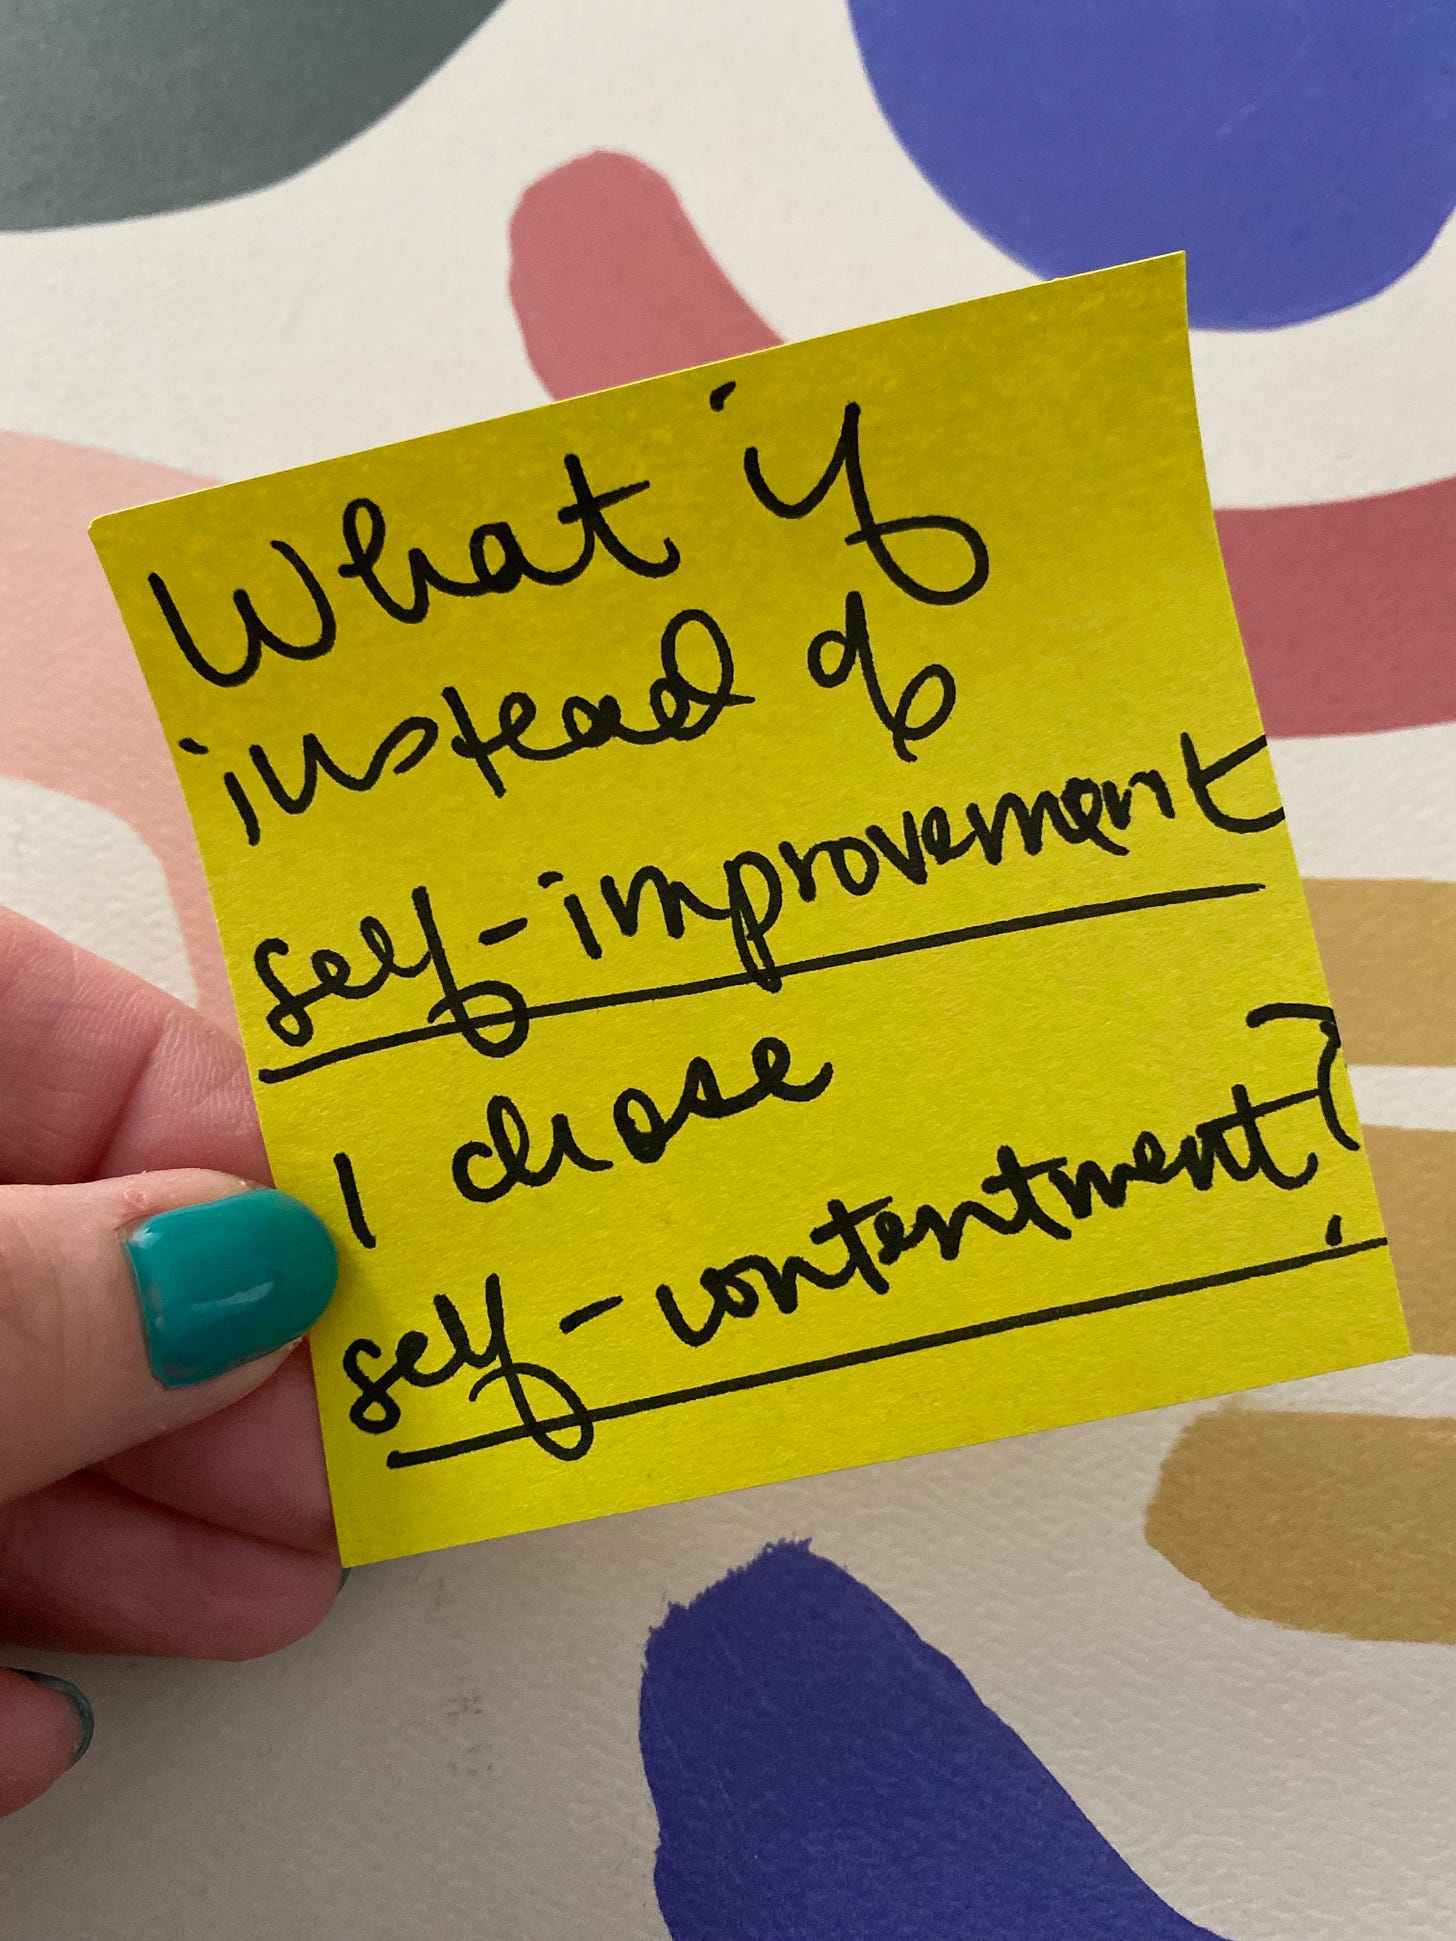 What if
instead of
self-improvement
I chose
self-contentment?